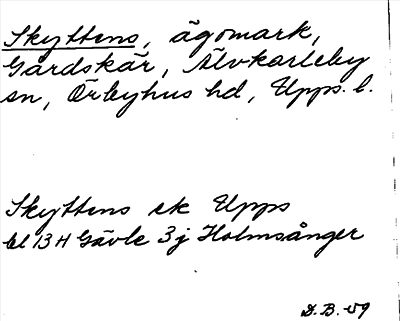 Skyttens, ägomark,
Gårdskär, Älvkarleby
sn, Örbyhus hd, Upps. l.
Skyttens ek Upps
bl 13 H Gävle 3j Holmsånger
D.B. -59